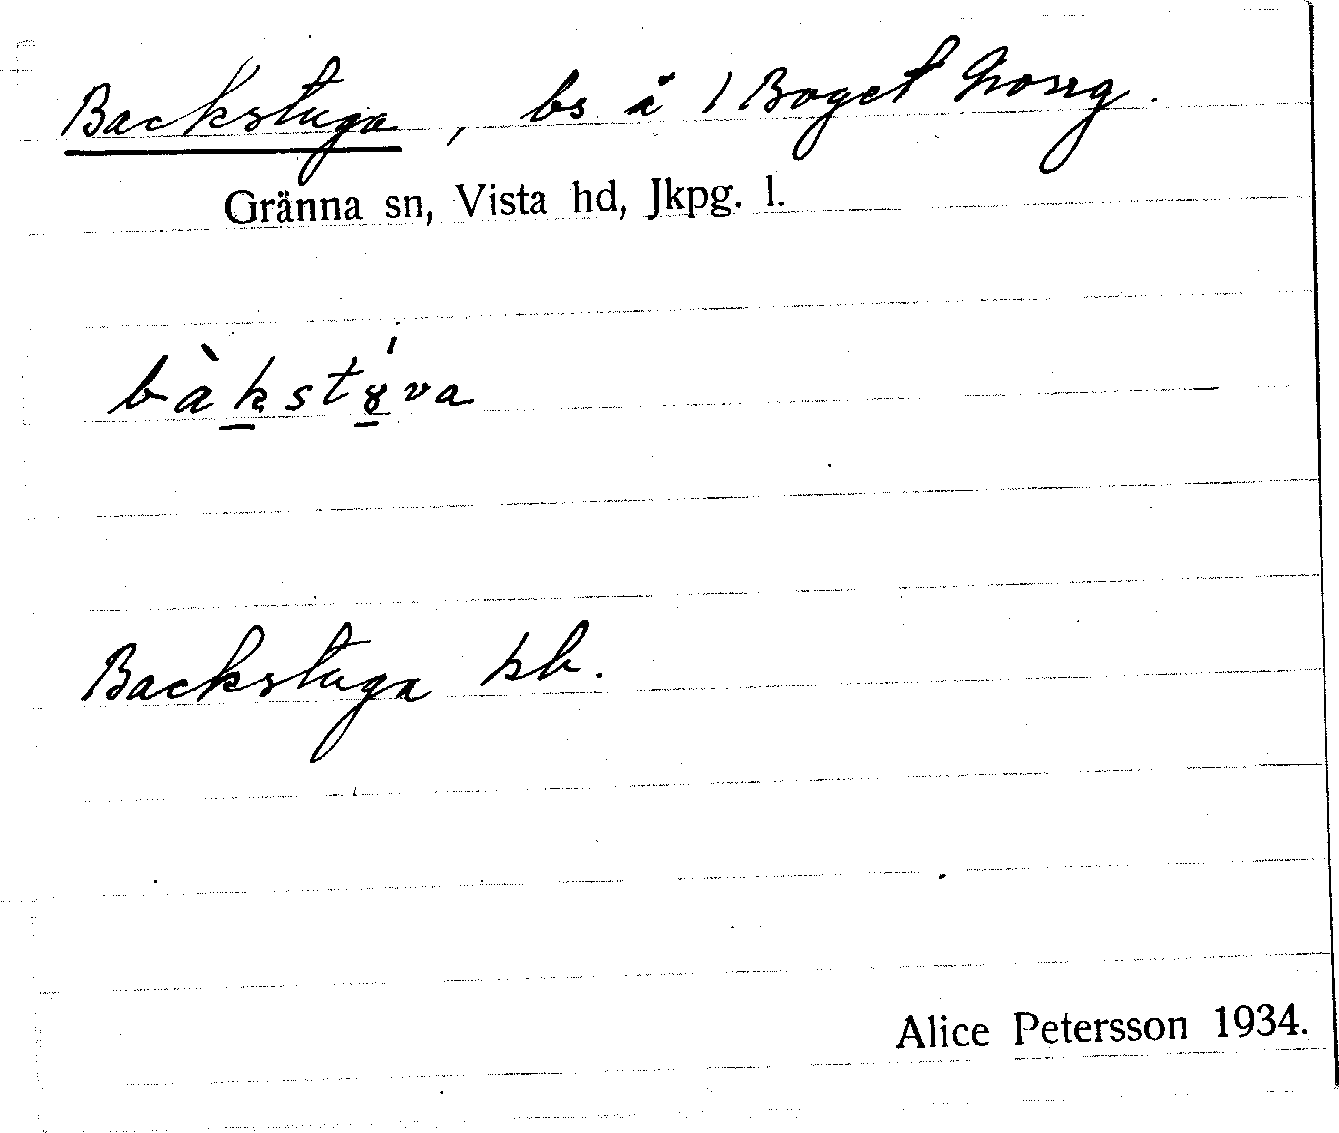 Backstuga, bs å 1 Boget Norrg.
Gränna sn, Vista hd, Jkpg. l.
bàkstý̠va
Backstuga kb.
Alice Petersson 1934.